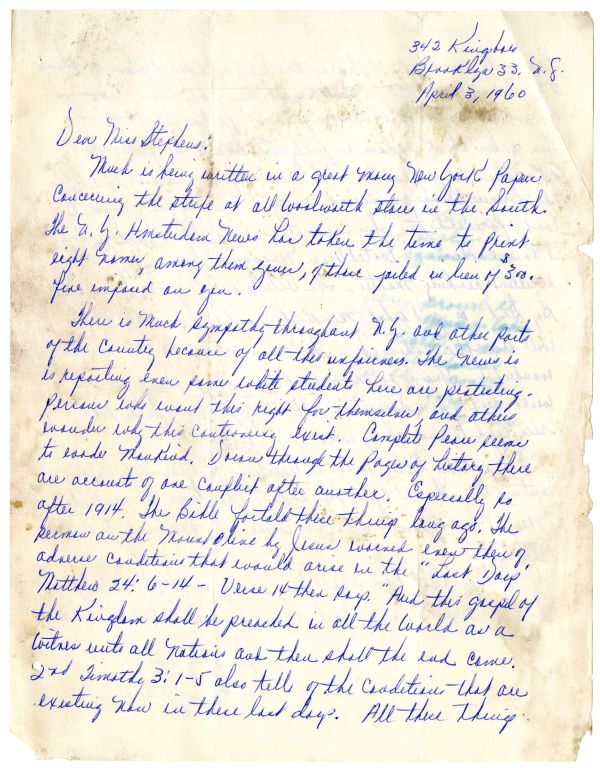 342 Kingston
Brooklyn 33, N.Y.
April 3, 1960
Dear Miss Stephens.
Much is being written in a great many New York Papers
Concerning the strife at all Woolworth stores in the South.
The N.Y. Amsterdam News has taken the time to print
eight names, among them yours, of those jailed in lieu of $300.
fine imposed on you.
There is Much sympathy throughout N.Y. and other parts
of the Country because of all this unfairness. The News is
is reporting even some white students here are protesting.
Persons who want this right for themselves and others
wonder why this exist. Complete Peace seems
to Mankind. Down through the Pages of history there
are account of one conflict after another. Especially so
after 1914. The Bible foretold these things long ago. The
sermon on the Mount Olive by Jesus warned even then of
adverse conditions that would arise in the "Last Days
Matthew 24: 6-14 - Verse 14 then says. "And this gospel of
the Kingdom shall be preached in all the world as a
Witness unto all Nations and then shall the end come.
2nd Timothy 3: 1-5 also tells of the Conditions that are
existing Now in these last days. All these things